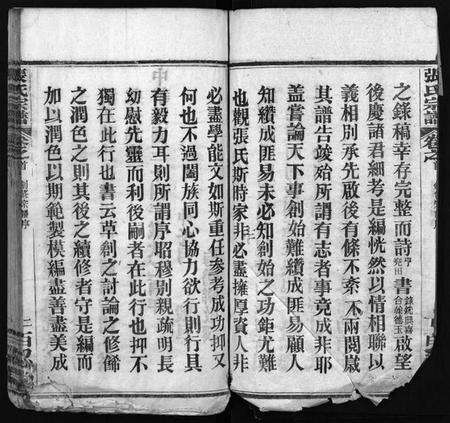 張氏宗譜
卷之首
之錄稿幸存完整而詩書啟望
後慶語君細考是編恍然以情相聯以
義相別承先啟後有條不紊不兩閱歲
其譜告竣始所謂有志者事竟成非耶
蓋嘗論天下事創始難纘成匪易顧人
知纘成匪易未必知創始之功鉅尤難
也觀張氏斯時家非必盡擁厚資人非
必盡學能文如斯重任參考成功抑又
何也不過闔族同心協力欲行則行具
有毅力耳則所謂序昭穆別親疏明長
幼慰先靈而利後嗣者在此行也抑不
獨在此行也書云草創之討論之修飾
之潤色之則其後之續修者守是編而
加以潤色以期範製模編盡善盡美成
張氏宗譜
卷之首